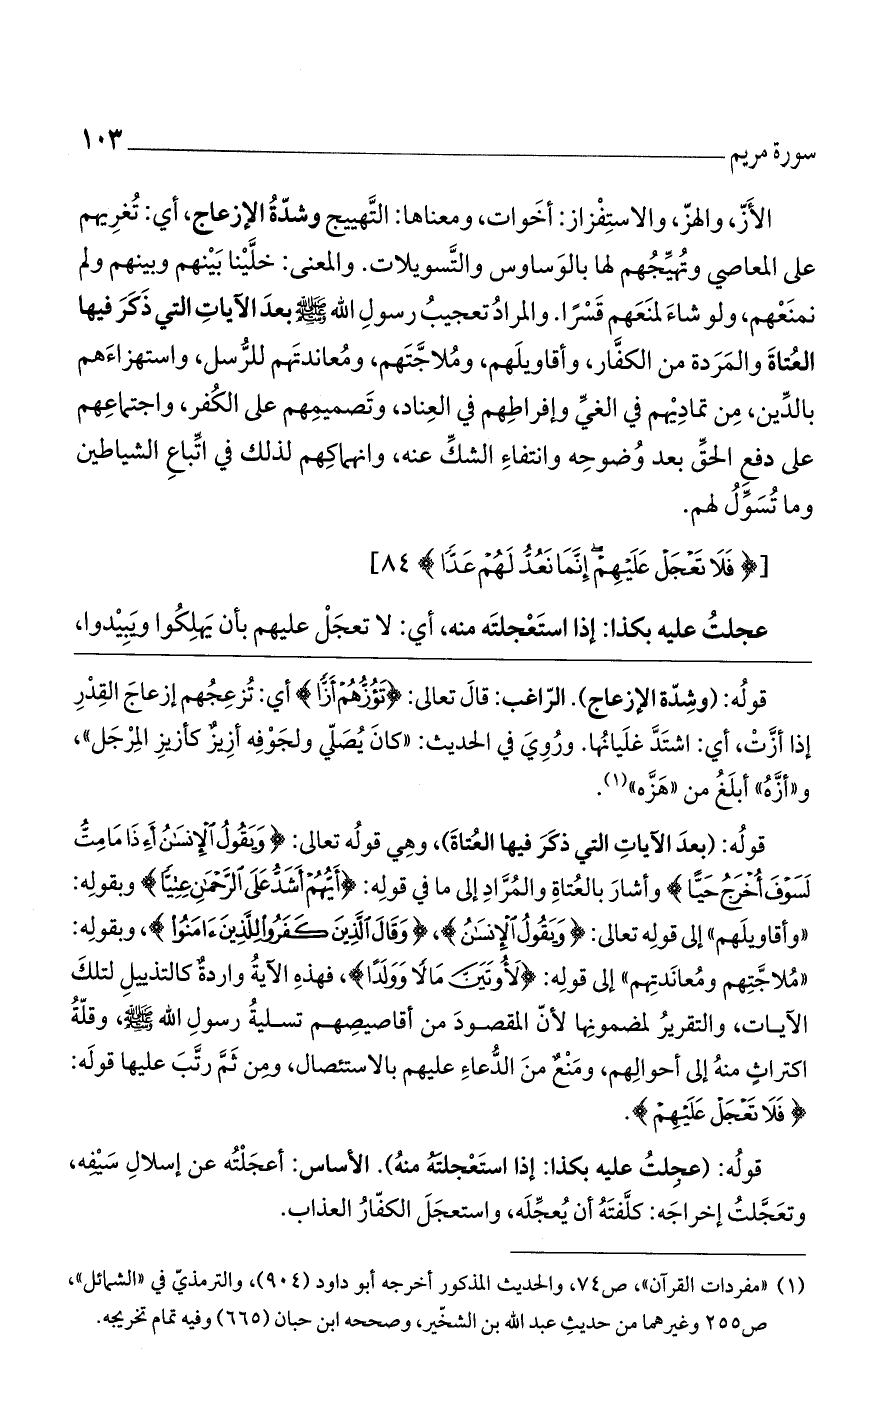 سورة مريم ١٠٣
الأَزّ، والهزّ، والاستِفْزاز: أخَوات، ومعناها: التَّهييج وشدّةُ الإزعاج، أي: تُغريهم
على المعاصي وتُهيِّجُهم لها بالوَساوس والتَّسويلات. والمعنى: خلَّيْنا بَيْنهم وبينهم ولم
نمنَعْهم، ولو شاءَ لمنَعَهم قَسْرًا. والمرادُ تعجيبُ رسولِ الله ﷺ بعدَ الآياتِ التي ذَكَرَ فيها
العُتاةَ والمَرَدة من الكفَّار، وأقاويلَهم، ومُلاجَّتَهم، ومُعاندتَهم للرُّسل، واستهزاءَهم
بالدِّين، مِن تمادِيْهم في الغيِّ وإفراطِهم في العِناد، وتَصميمِهم على الكُفر، واجتماعِهم
على دفع الحقِّ بعد وُضوحِه وانتفاءِ الشكِّ عنه، وانهماكِهم لذلك في اتِّباعِ الشياطين
وما تُسَوِّلُ لهم.
[﴿فَلَا تَعْجَلْ عَلَيْهِمْ ۖ إِنَّمَا نَعُدُّ لَهُمْ عَدًّا﴾ ٨٤]
عجلتُ عليه بكذا: إذا استَعْجلتَه منه، أي: لا تعجَلْ عليهم بأن يَهلِكُوا ويَبِيْدوا،
قولُه: (وشِدّة الإزعاج). الرّاغب: قالَ تعالى: ﴿تَؤُزُّهُمْ أَزًّا﴾ أي: تُزعِجُهم إزعاجَ القِدْرِ
إذا أزَّتْ، أي: اشتَدَّ غلَيانُها. ورُوِيَ في الحديث: «كانَ يُصَلّي ولجَوْفِه أزِيزٌ كأزيزِ المِرْجَل»،
و«أزَّهُ» أبلَغُ من «هَزَّه»(١).
قولُه: (بعدَ الآياتِ التي ذكَرَ فيها العُتاةَ)، وهِي قولُه تعالى: ﴿وَيَقُولُ ٱلْإِنسَٰنُ أَءِذَا مَا مِتُّ
لَسَوْفَ أُخْرَجُ حَيًّا﴾ وأشارَ بالعُتاةِ والمُرَّادِ إلى ما في قولِه: ﴿أَيُّهُمْ أَشَدُّ عَلَى ٱلرَّحْمَٰنِ عِتِيًّا﴾ وبقولِه:
«وأقاويلَهم» إلى قولِه تعالى: ﴿وَيَقُولُ ٱلْإِنسَٰنُ﴾، ﴿وَقَالَ ٱلَّذِينَ كَفَرُوا۟ لِلَّذِينَ ءَامَنُوٓا۟﴾، وبقولِه:
«مُلاجَّتِهم ومُعاندَتِهم» إلى قولِه: ﴿لَأُوتَيَنَّ مَالًا وَوَلَدًا﴾، فهذِه الآيةُ واردةٌ كالتذييلِ لتلكَ
الآيـات، والتقريرُ لمضمونِها لأنّ المقصودَ من أقاصيصِهم تسليةُ رسولِ الله ﷺ، وقلّةُ
اكتراثٍ منهُ إلى أحوالِهم، ومَنْعٌ منَ الدُّعاءِ عليهم بالاستئصال، ومِن ثَمَّ رتَّبَ عليها قولَه:
﴿فَلَا تَعْجَلْ عَلَيْهِمْ﴾.
قولُه: (عجِلتُ عليه بكذا: إذا استَعْجلتَهُ منهُ). الأساس: أعجَلْتُه عن إسلالِ سَيْفِه،
وتعَجَّلتُ إخراجَه: كلَّفتَهُ أن يُعجِّلَه، واستعجَلَ الكفّارُ العذاب.
(١) «مفردات القرآن»، ص٧٤، والحديث المذكور أخرجه أبو داود (٩٠٤)، والترمذيّ في «الشمائل»،
ص٢٥٥ وغيرهما من حديثِ عبد الله بن الشخّير، وصححه ابن حبان (٦٦٥) وفيه تمام تخريجه.